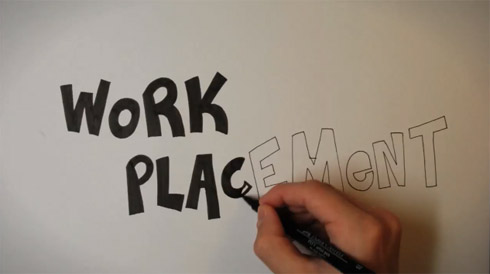 WoRK
PLACEMeNT